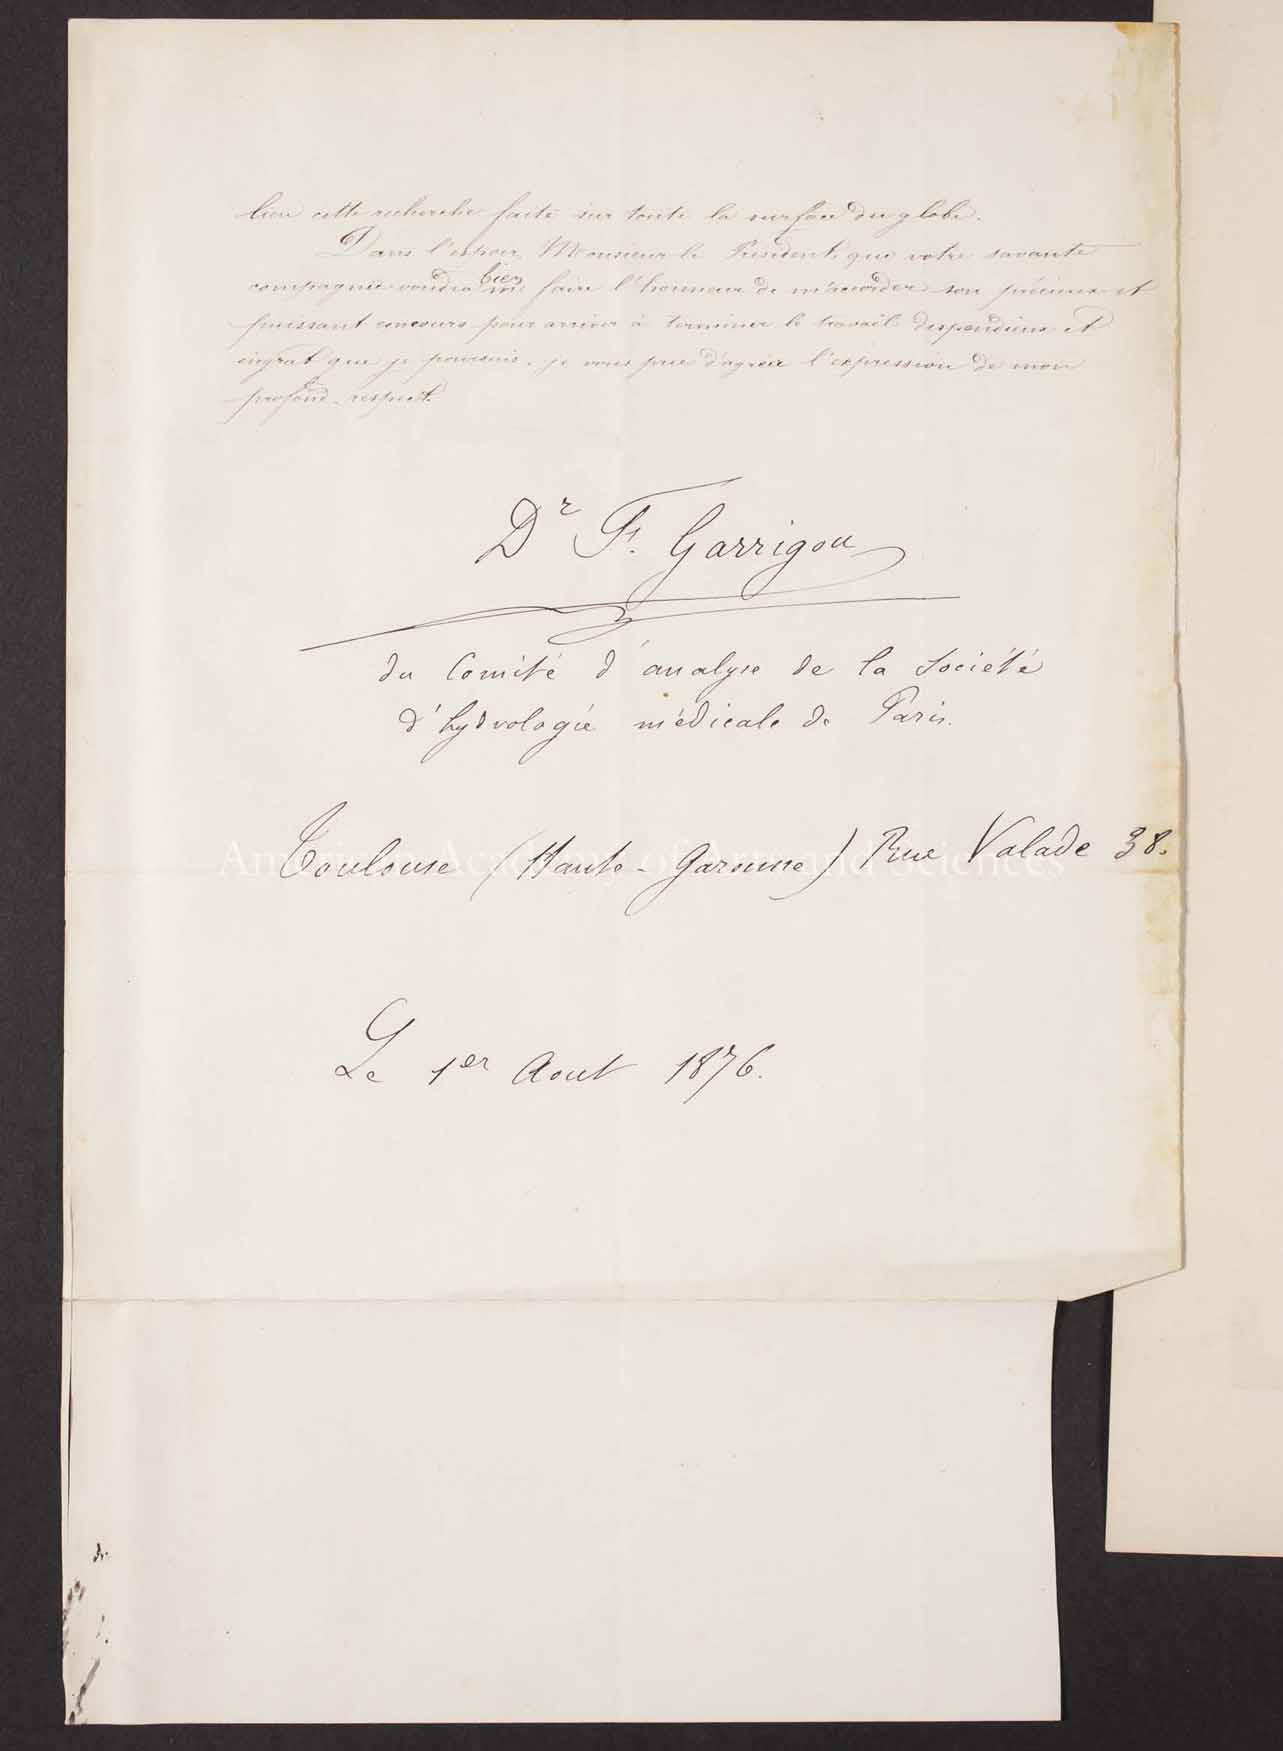 lieu cette recherche faite sur toute la surface du globe.
Dans l'espoir, Monsieur le Président, que votre savante
compagnie voudra bien me faire l'honneur de m'accorder son précieux et
puissant concours pour arriver à terminer le travail dispendieux et
ingrat que je poursuis, je vous prie d'agréer l'expression de mon
profond respect.
Dr F. Garrigou
du Comité d'analyse de la Société
d'hydrologie médicale de Paris.
Toulouse (Haute-Garonne) Rue Valade 38.
American Academy of Arts and Sciences
Le 1er Aout 1876.